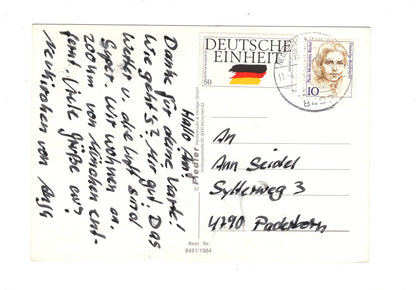 Hallo Ann!
Danke für deine Karte!
Wie geht's? Mir gut! Das
Wetter u. die Luft sind
super. Wir wohnen ca.
200km von München ent-
fernt. Viele Grüße aus
Neukirchen von
© Fiedler
DEUTSCHE
EINHEIT
50
10
An
Ann Seidel
Sylterweg 3
4790 Paderborn
Best. Nr.
8491/1984